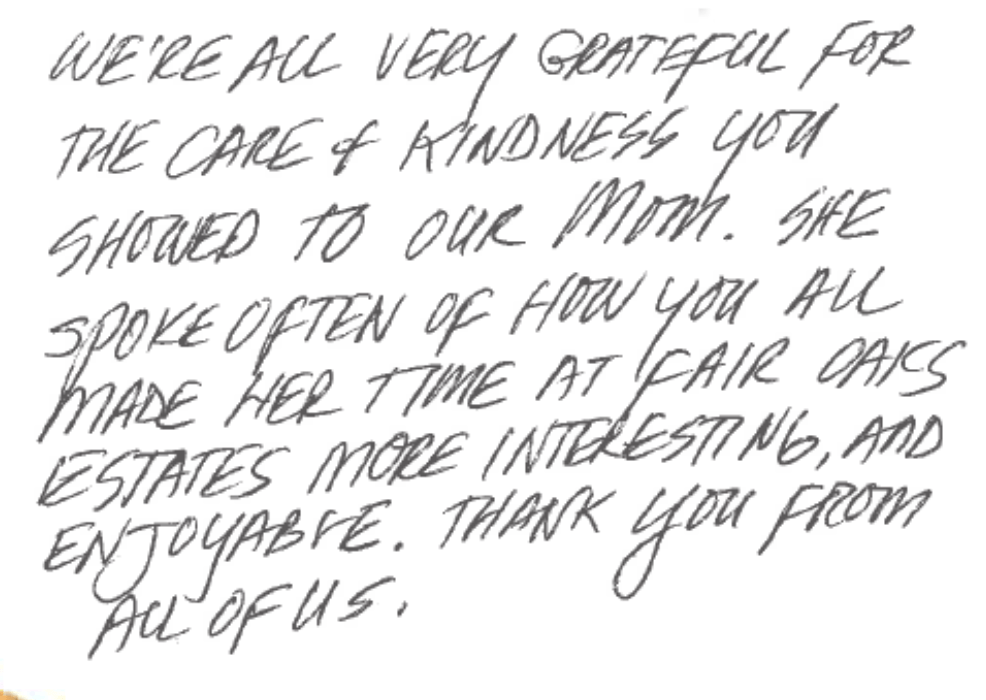 WE'RE ALL VERY GRATEFUL FOR
THE CARE & KINDNESS YOU
SHOWED TO OUR MOM. SHE
SPOKE OFTEN OF HOW YOU ALL
MADE HER TIME AT FAIR OAKS
ESTATES MORE INTERESTING, AND
ENJOYABLE. THANK YOU FROM
ALL OF US.